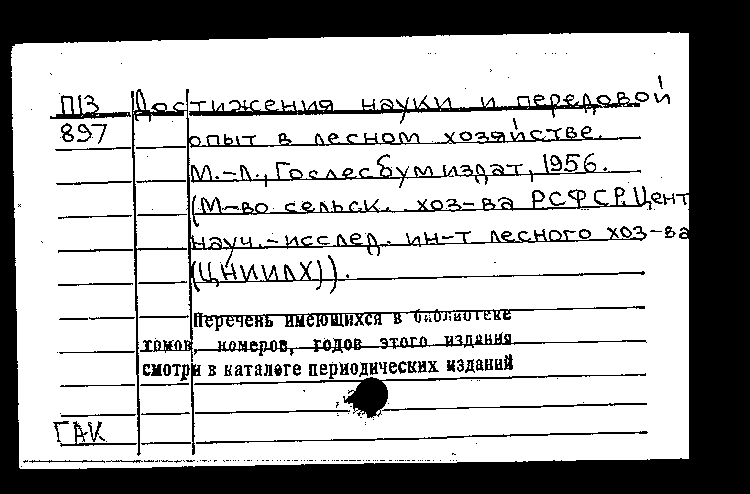 П13 Достижения науки и передовой
897 опыт в лесном хозяйстве.
М.-Л., Гослесбумиздат, 1956.
(М-во сельск. хоз-ва РСФСР. Цент
науч.-исслед. ин-т лесного хоз-ва
(ЦНИИЛХ)).
Перечень имеющихся в библиотеке
томов, номеров, годов этого издания
смотри в каталоге периодических изданий
ГАК